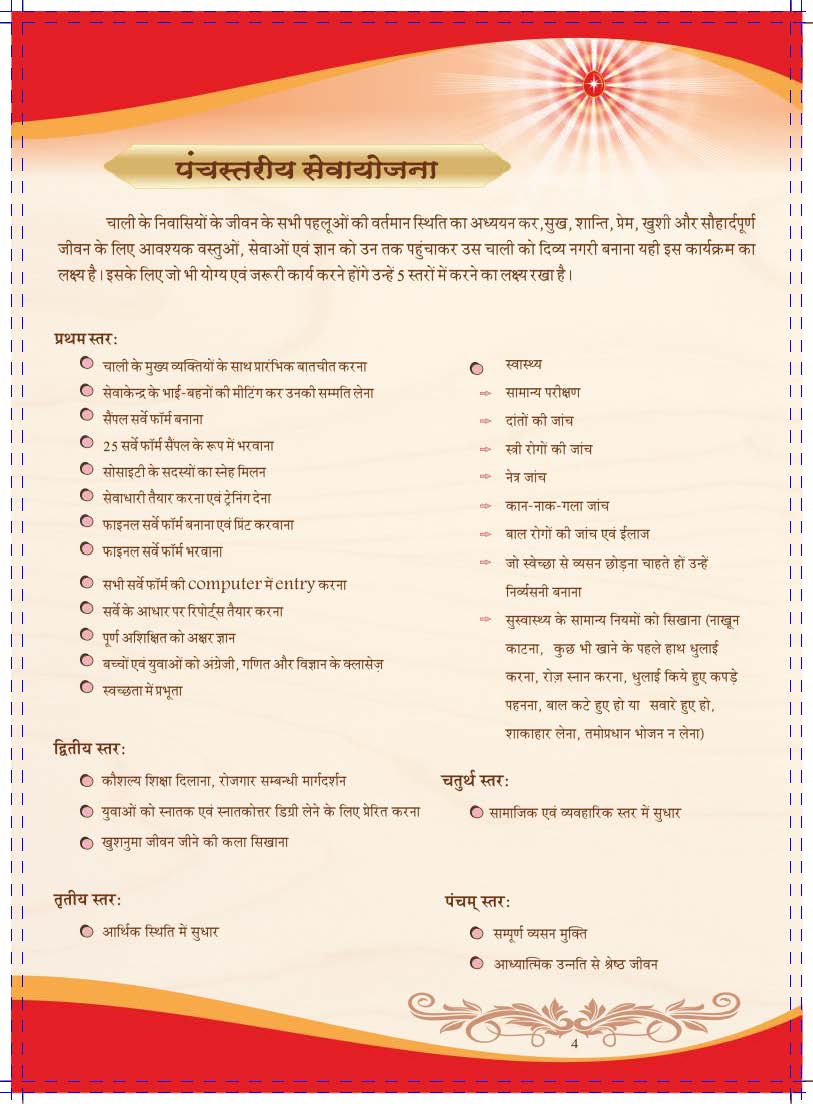 पंचस्तरीय सेवायोजना
चाली के निवासियों के जीवन के सभी पहलूओं की वर्तमान स्थिति का अध्ययन कर,सुख, शान्ति, प्रेम, खुशी और सौहार्दपूर्ण
जीवन के लिए आवश्यक वस्तुओं, सेवाओं एवं ज्ञान को उन तक पहुंचाकर उस चाली को दिव्य नगरी बनाना यही इस कार्यक्रम का
लक्ष्य है। इसके लिए जो भी योग्य एवं जरूरी कार्य करने होंगे उन्हें 5 स्तरों में करने का लक्ष्य रखा है।
प्रथम स्तर:
चाली के मुख्य व्यक्तियों के साथ प्रारंभिक बातचीत करना
सेवाकेन्द्र के भाई-बहनों की मीटिंग कर उनकी सम्मति लेना
सैंपल सर्वे फॉर्म बनाना
25 सर्वे फॉर्म सैंपल के रूप में भरवाना
सोसाइटी के सदस्यों का स्नेह मिलन
सेवाधारी तैयार करना एवं ट्रेनिंग देना
फाइनल सर्वे फॉर्म बनाना एवं प्रिंट करवाना
फाइनल सर्वे फॉर्म भरवाना
सभी सर्वे फॉर्म की computer में entry करना
सर्वे के आधार पर रिपोर्ट्स तैयार करना
पूर्ण अशिक्षित को अक्षर ज्ञान
बच्चों एवं युवाओं को अंग्रेजी, गणित और विज्ञान के क्लासेज़
स्वच्छता में प्रभूता
स्वास्थ्य
⇨ सामान्य परीक्षण
⇨ दांतों की जांच
⇨ स्त्री रोगों की जांच
⇨ नेत्र जांच
⇨ कान-नाक-गला जांच
⇨ बाल रोगों की जांच एवं ईलाज
⇨ जो स्वेच्छा से व्यसन छोड़ना चाहते हों उन्हें
निर्व्यसनी बनाना
⇨ सुस्वास्थ्य के सामान्य नियमों को सिखाना (नाखून
काटना, कुछ भी खाने के पहले हाथ धुलाई
करना, रोज़ स्नान करना, धुलाई किये हुए कपड़े
पहनना, बाल कटे हुए हो या सवारे हुए हो,
शाकाहार लेना, तमोप्रधान भोजन न लेना)
द्वितीय स्तर:
कौशल्य शिक्षा दिलाना, रोजगार सम्बन्धी मार्गदर्शन
युवाओं को स्नातक एवं स्नातकोत्तर डिग्री लेने के लिए प्रेरित करना
खुशनुमा जीवन जीने की कला सिखाना
तृतीय स्तर:
आर्थिक स्थिति में सुधार
चतुर्थ स्तर:
सामाजिक एवं व्यवहारिक स्तर में सुधार
पंचम् स्तर:
सम्पूर्ण व्यसन मुक्ति
आध्यात्मिक उन्नति से श्रेष्ठ जीवन
4